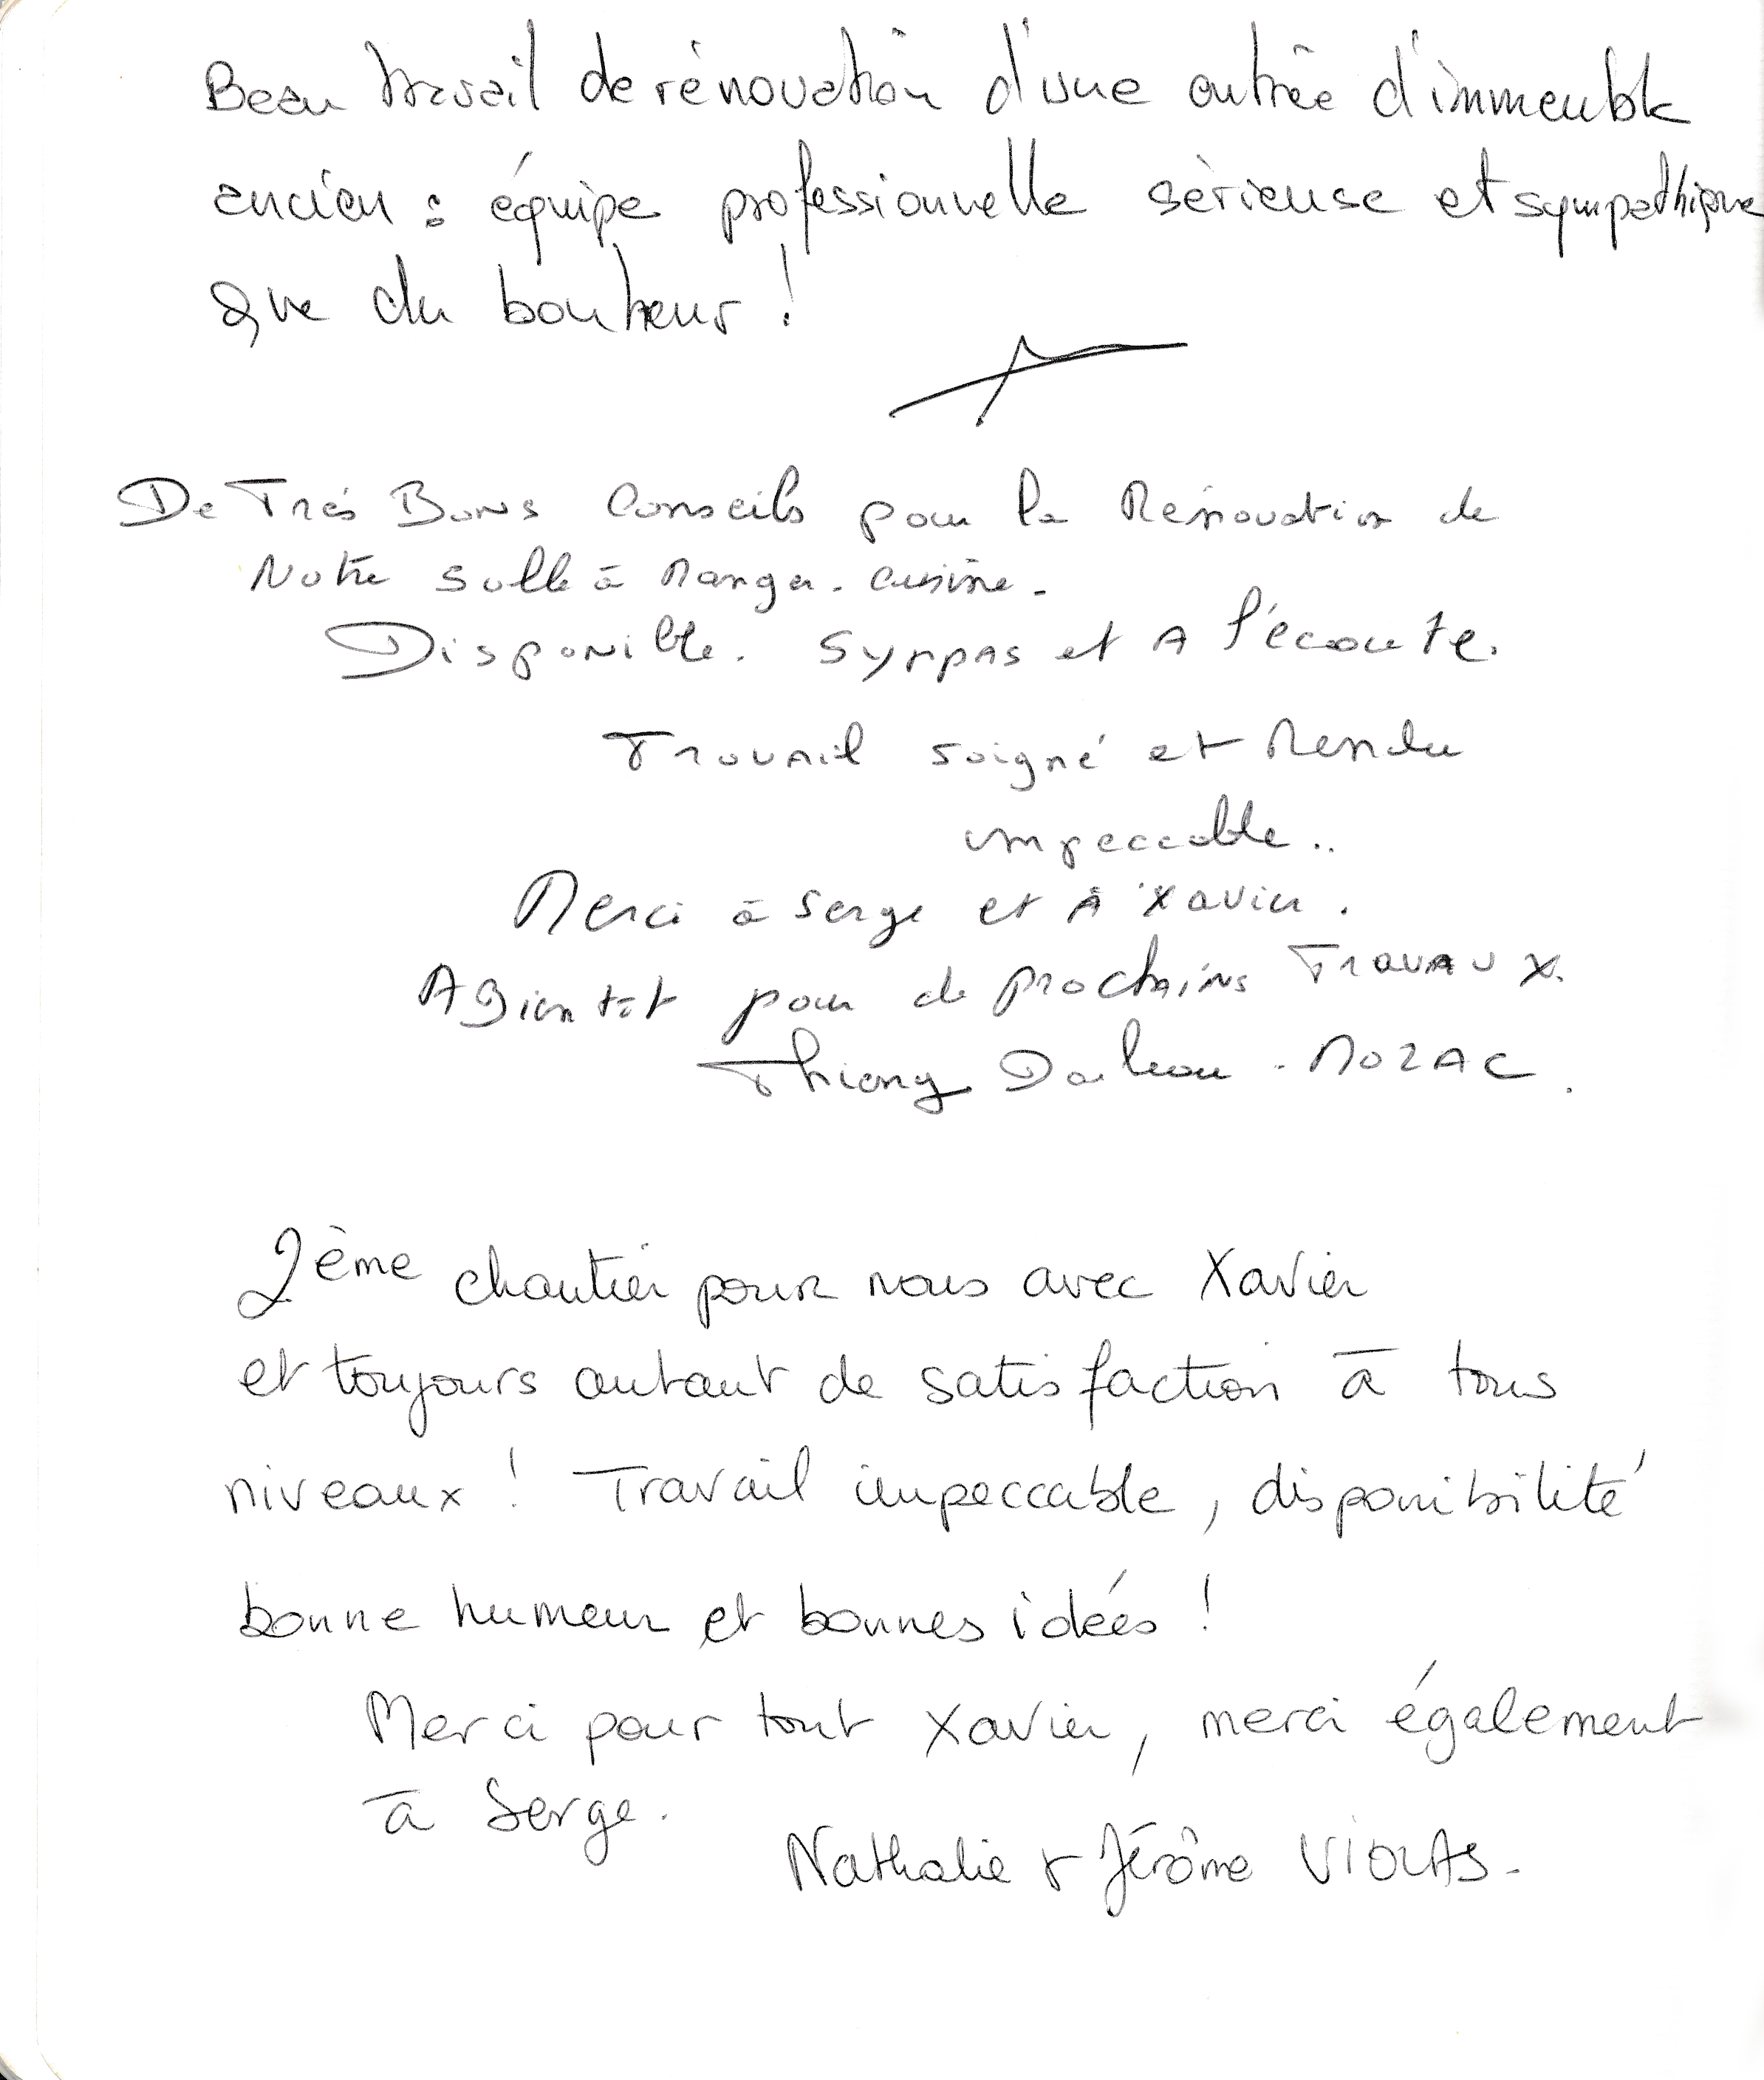 Beau travail de rénovation d'une entrée d'immeuble
ancien : équipe professionnelle sérieuse et sympathique
que du bonheur !
De Très Bons Conseils pour la Rénovation de
Notre salle à Manger - cuisine -
Disponible. Sympas et A l'écoute.
Travail soigné et Rendu
impeccable..
Merci à Serge et A Xavier.
A Bientôt pour de prochains Travaux.
Thierry - MOZAC.
2ème chantier pour nous avec Xavier
et toujours autant de satisfaction à tous
niveaux ! Travail impeccable, disponibilité
bonne humeur et bonnes idées !
Merci pour tout Xavier, merci également
à Serge.
Nathalie & Jérôme VIOLAS -